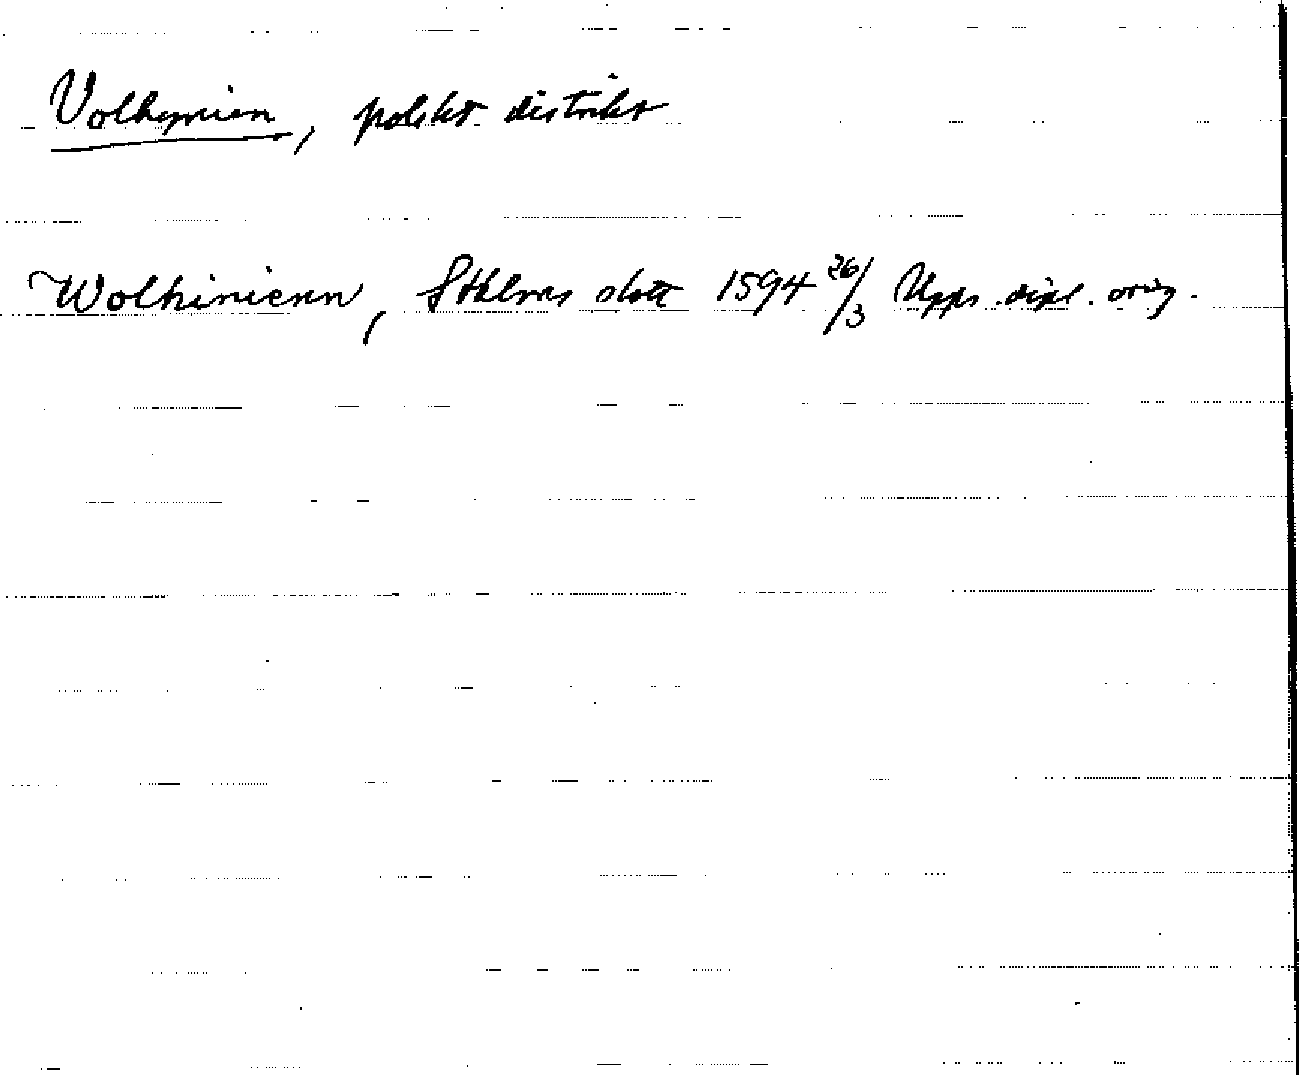 Volhynien, polskt distrikt
Wolhinienn, Sthlms slott 1594 26/3 Upps. dipl. orig.